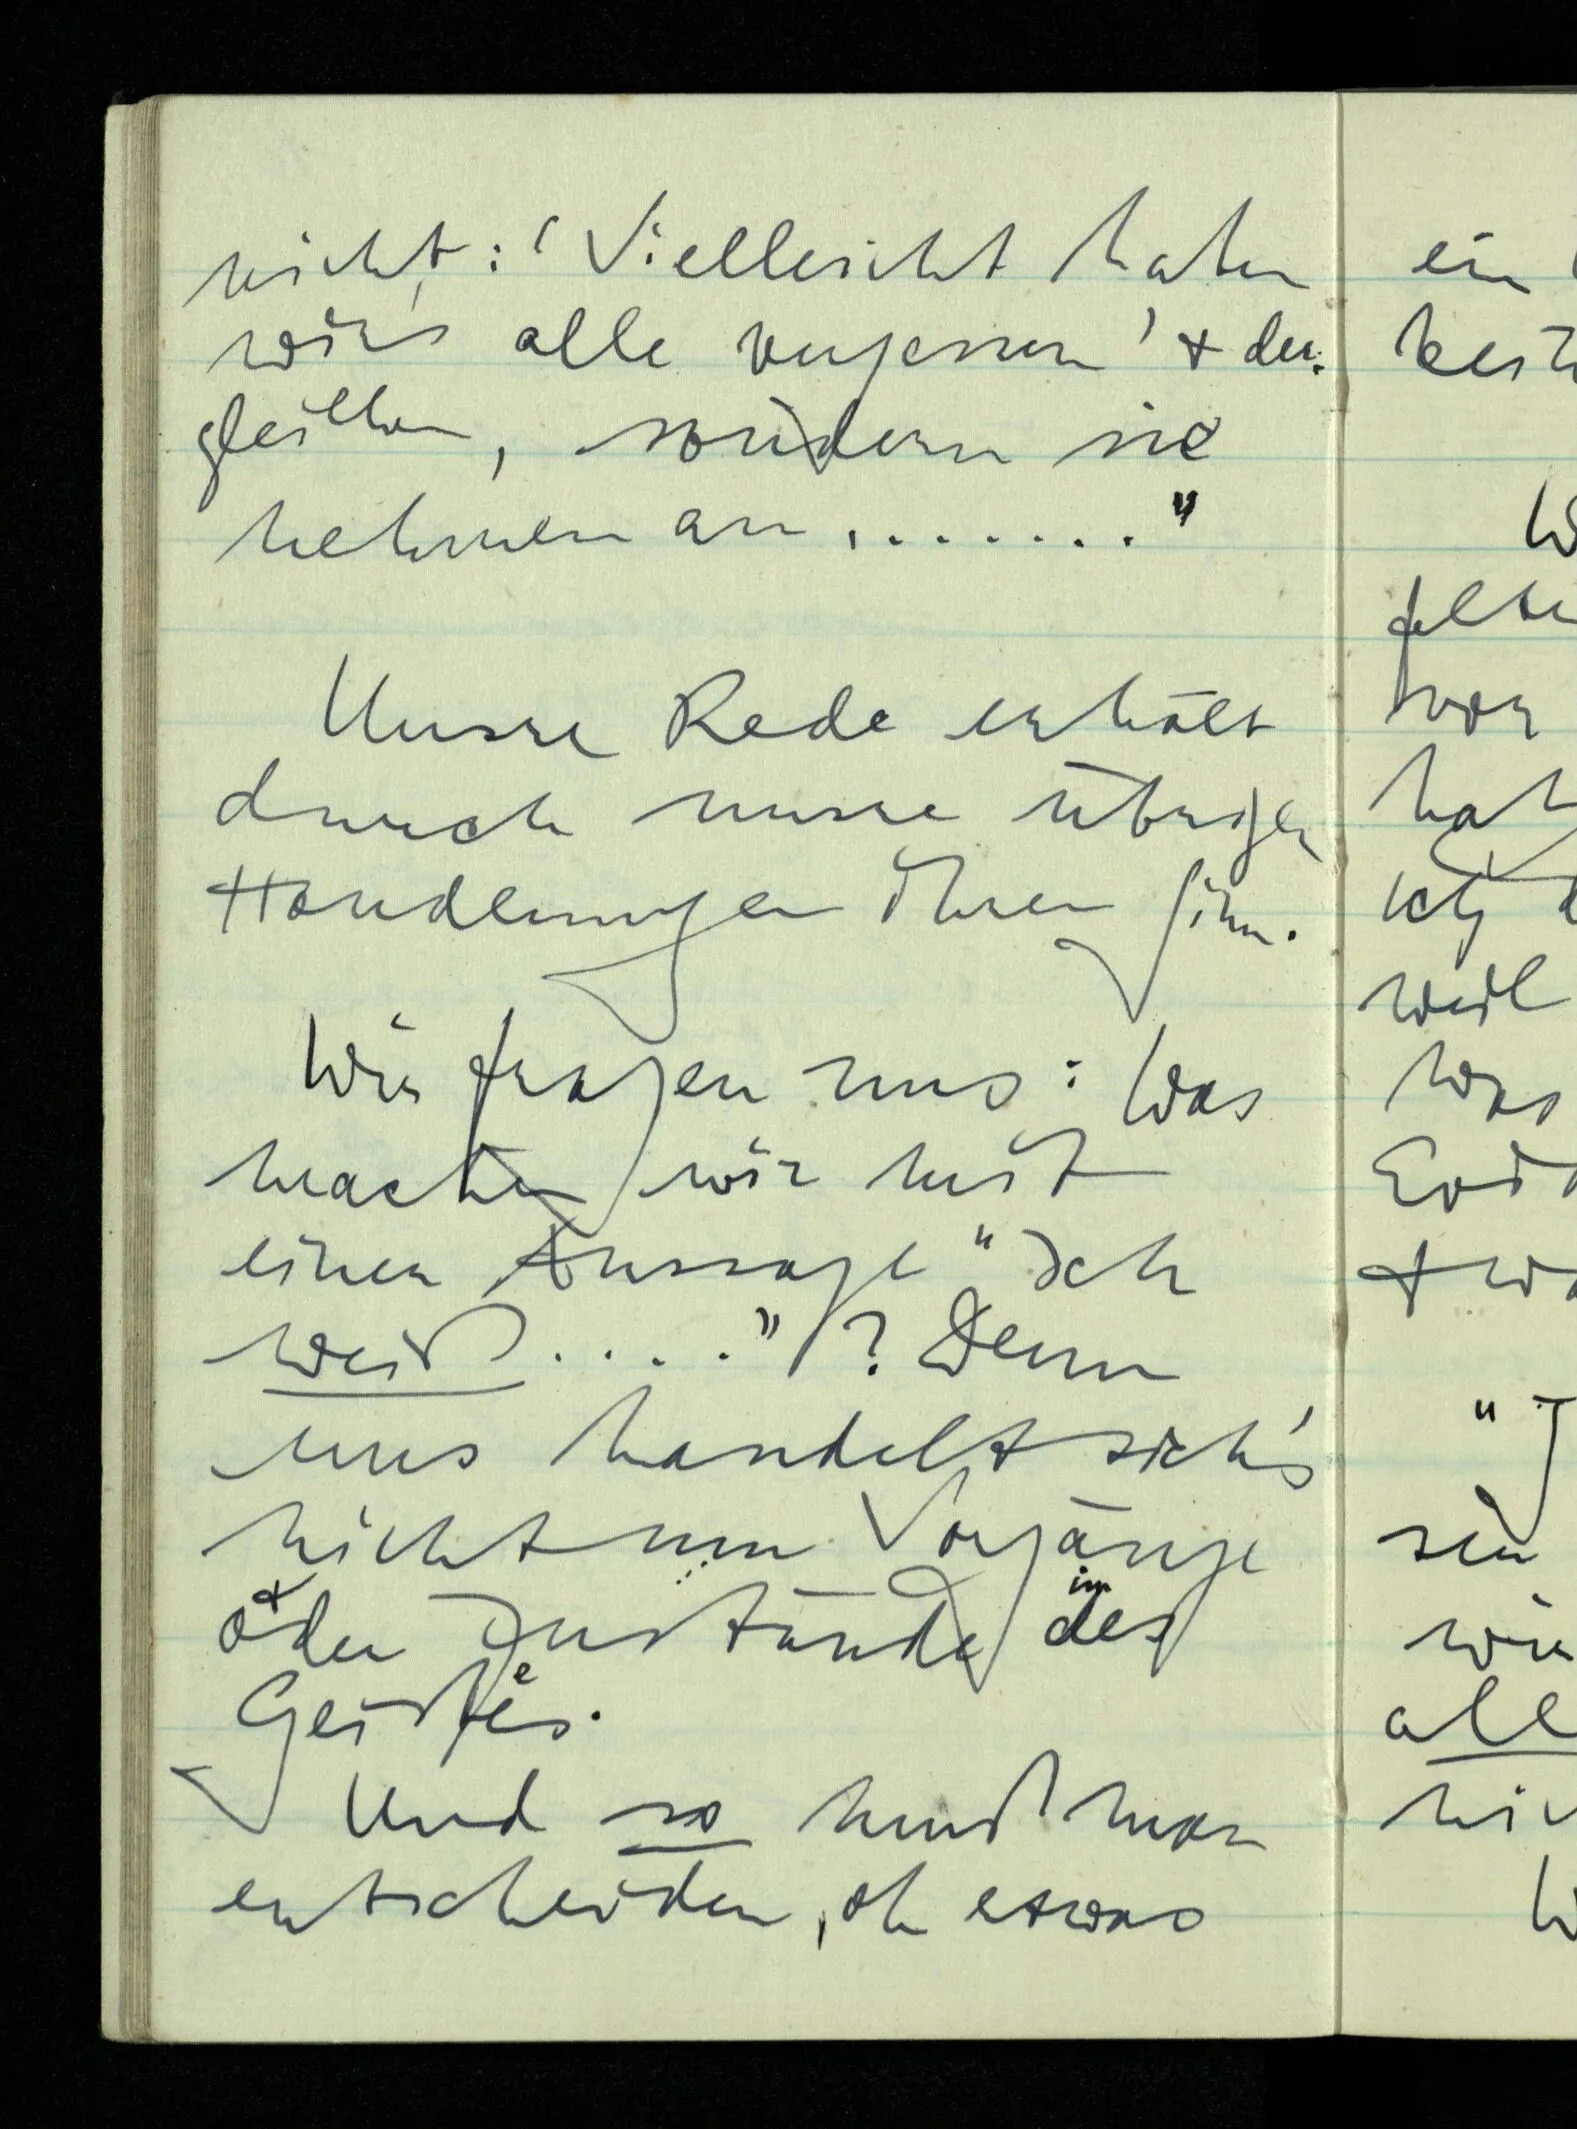 nicht: 'Vielleicht haben
wir's alle vergessen' + der-
gleichen, sondern sie
nehmen an, ......."
Unsre Rede erhält
durch unsre übrigen
Handlungen ihren Sinn.
Wir fragen uns: Was
machen wir mit
einer Aussage "Ich
weiß ...."? Denn
uns handelt sich's
nicht um Vorgänge
oder Zustände im des
Geistes.
Und so muß man
entscheiden, ob etwas
ein
W
vor
ich
weil
was
+
sein
wir
alle
W